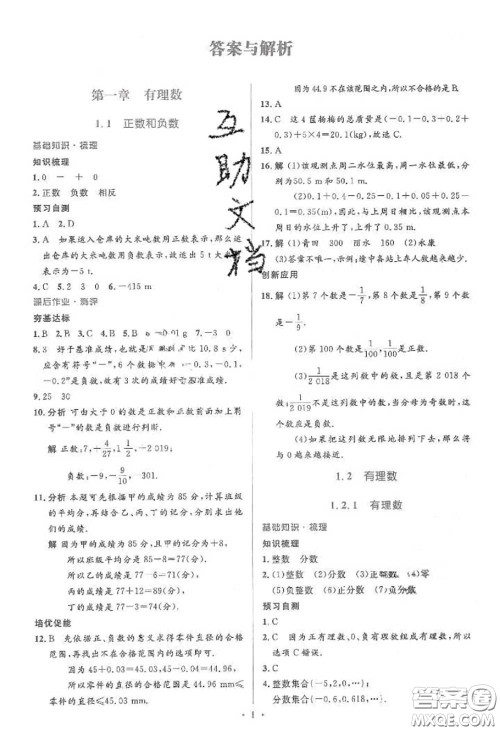 答案与解析
第一章 有理数
1.1 正数和负数
基础知识·梳理
知识梳理
1.0 － ＋ 0
2.正数 负数 相反
预习自测
1.A 2.D
3.A 如果运入仓库的大米吨数用正数表示,那么运
出仓库的大米吨数用负数表示,故运出5 t大米
表示为－5 t
课后作业·测评
夯基达标
1.B 2.B 3.B 4.B 5.B
8.3 好于基准成绩,也就是
应含有符号“－”,6个数据
－0.2”是负数,故有3次的成绩好于基准成绩.
9.25 30
10.分析 可由大于0的数是正数和正数前面加上符
号“－”的数是负数进行判断.
解 正数:7,＋4/27,1 1/2,－2 019;
负数:－9,－9/10, 301.
11.分析 本题可先根据甲的成绩为85分,计算班级
的平均分,再由平均分计算乙、丙、丁的成绩.
解 因为甲的成绩为85分,且甲的分数为＋8分,
所以班级平均分是85－8＝77(分).
所以乙的成绩是77＋12＝89(分).
所以丙的成绩是77＋0＝77(分).
所以丁的成绩是77－3＝74(分).
培优促能
12.B 先依据正、负数的意义求得零件直径的合格范
围,再找出不在合格范围内的选项即可.
因为45＋0.03＝45.03,45－0.04＝44.96,
所以零件的直径的合格范围是44.96 mm≤
零件的直径≤45.03 mm.
因为44.9不在该范围之内,所以不合格的是B.
13.A
14.C 这4筐杨梅的总质量是(－0.1－0.3＋0.2＋
0.3)＋5×4＝20.1(kg),故选C.
15.A
16.解 (1)该观测点周二水位最高,周一水位最低,分
别为50.5 m和50.1 m.
(2)(0.1＋0.4－0.25－0.1＋0.05＋0.25－
0.1)＝0.35(m),因此,与上周日相比,本周日该观
测点的水位是上升了,上升了0.35 m.
17.解 (1)青田 300 丽水 160 (2)永康
(3)答案不唯一,示例:途中各站上车人数越来越少.
创新应用
18.解 (1)第7个数是－1/7,第8个数是1/8,第9个数是
－1/9.
(2)第100个数是1/100,1/100是正数.
(3)1/2 018是这列数中的数,且是第2 018个数,
1/2 019不是这列数中的数,因为这列数中,第奇数个
数应是负数.
(4)如果这列数无限地排列下去,那么将与
0越来越接近.
1.2 有理数
1.2.1 有理数
基础知识·梳理
知识梳理
1.整数 分数
2.(1)正整数 (2)0 (3)正整数 (4)零
(5)负整数 (6)正分数 (7)负分数
预习自测
1.C
2.C 因为正有理数、0、负有理数组成有理数,所以选
项C错误.
3.C
4.整数集合(－5,0,…)
分数集合(－0.6,0.618,…).
1
互助文档